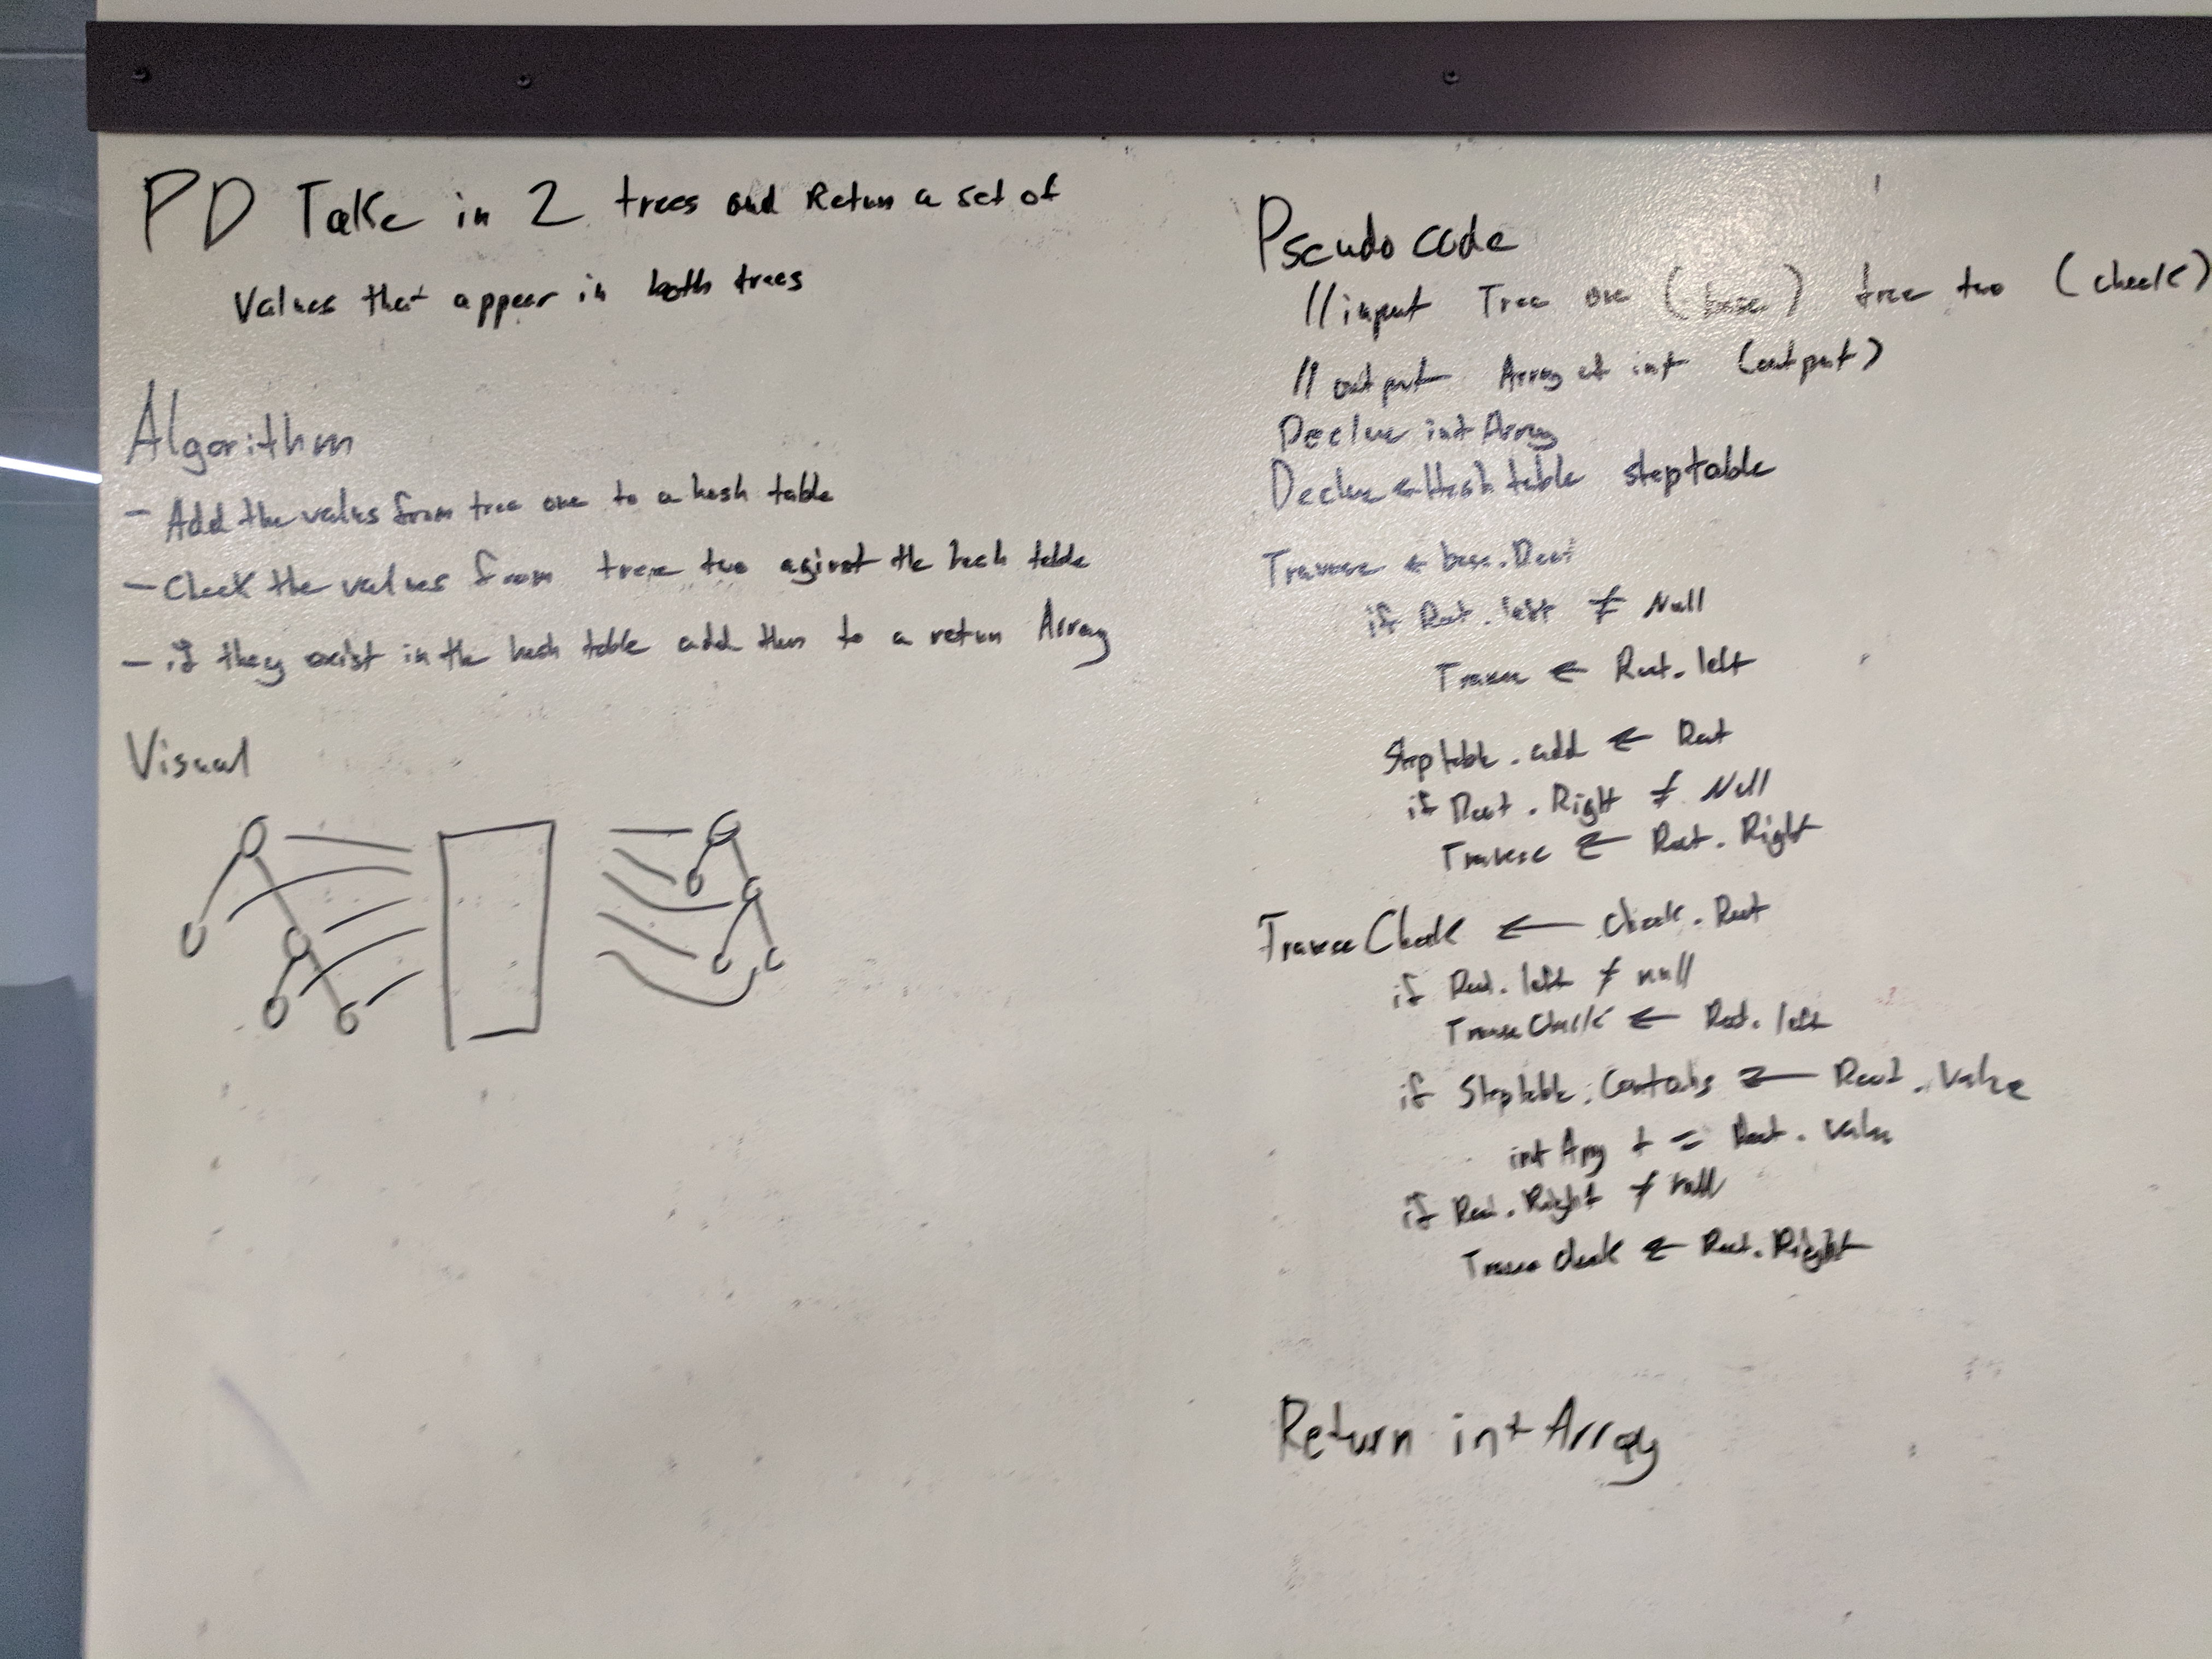 PD Take in 2 trees and Return a set of
Values that appear in both trees
Algorithm
- Add the values from tree one to a hash table
- Check the values from tree two aginst the hash table
- if they exist in the hash table add them to a return Array
Visual
Pseudo code
//input Tree one (base) tree two (check)
//output Array of int (output)
Declare int Array
Declare Hash table steptable
Traverse ← base.Root
if Root.left ≠ Null
Traverse ← Root.left
Steptable.add ← Root
if Root.Right ≠ Null
Traverse ← Root.Right
Traverse Check ← check.Root
if Root.left ≠ null
Traverse Check ← Root.left
if Steptable.Contains ← Root.Value
int Array += Root.value
if Root.Right ≠ null
Traverse check ← Root.Right
Return int Array